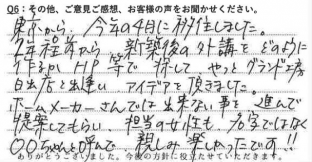 Q6：その他、ご意見ご感想、お客様の声をお聞かせください。
東京から、今年の4月に移住しました。
2年程前から 新築後の外講を どのように
作るか HP 等で 探して やっと グランド工房
日出店と出逢い アイデアを 頂きました。
ホームメーカーさんでは 出来ない事を 進んで
提案してもらい 担当の女性も 名字ではなく
〇〇ちゃんと呼んで 親しみ 楽しかったです!!
ありがとうございました。今後の方針に役立たせていただきます。